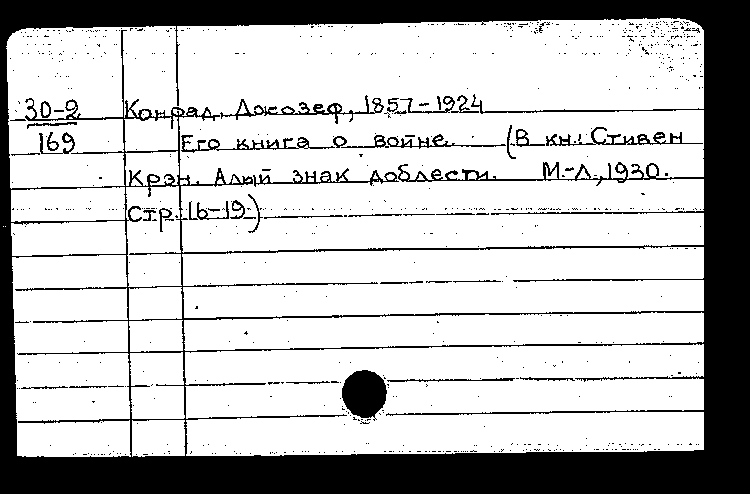 30-2 Конрад, Джозеф, 1857-1924
169 Его книга о войне. (В кн.: Стивен
Крэн. Алый знак доблести. М.-Л., 1930.
Стр. 16-19.)